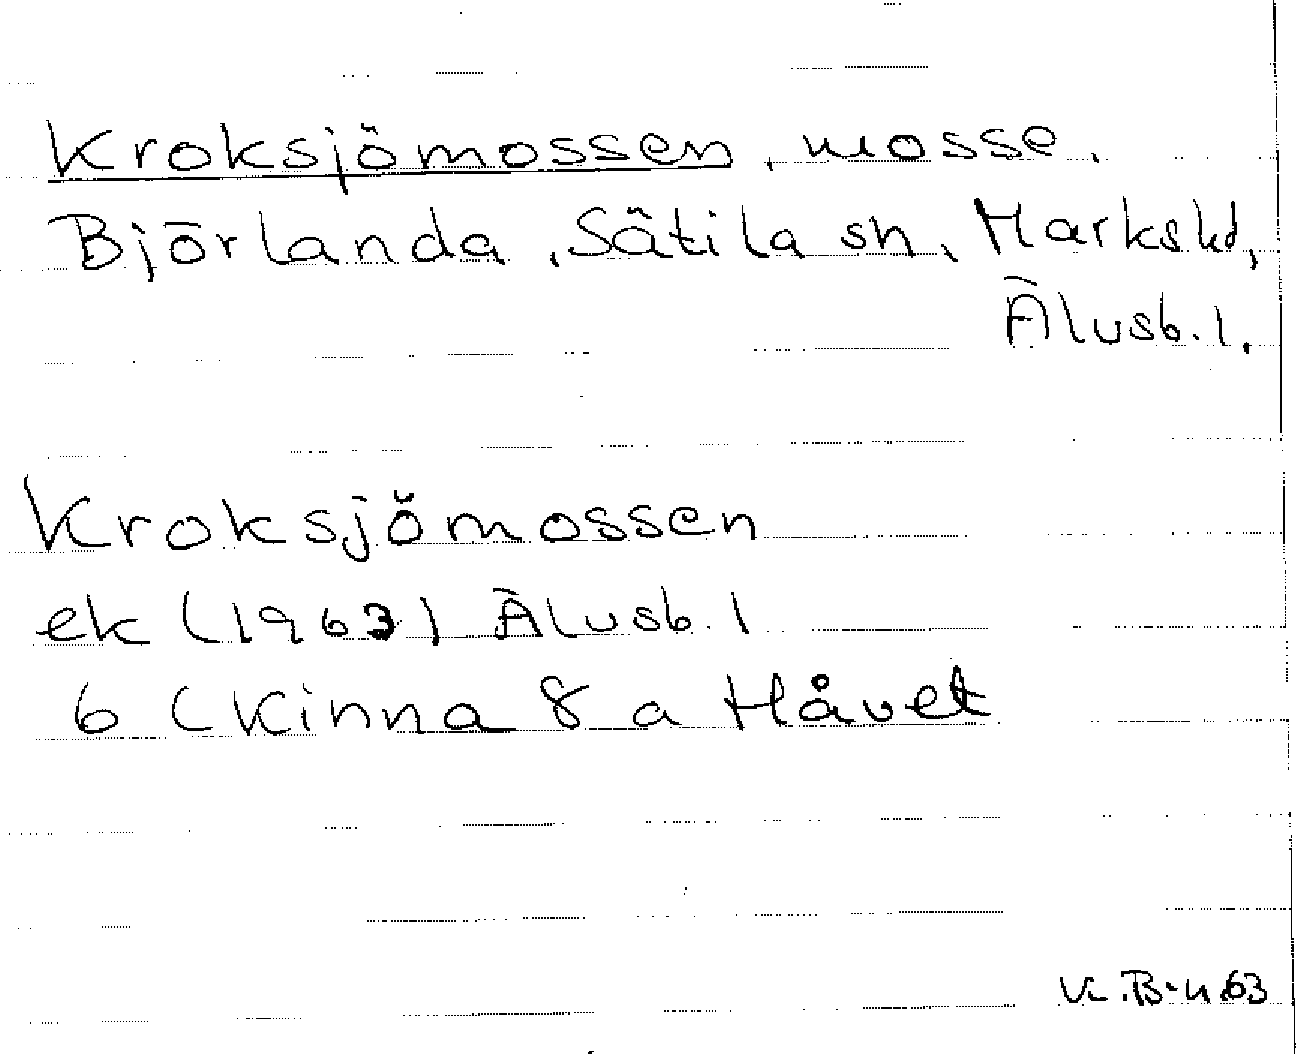 Kroksjömossen, mosse,
Björlanda, Sätila sn, Marks hd,
Älvsb. l.
Kroksjömossen
ek (1963) Älvsb. l
6 (Kinna 8 a Håvet
K.B-n 63